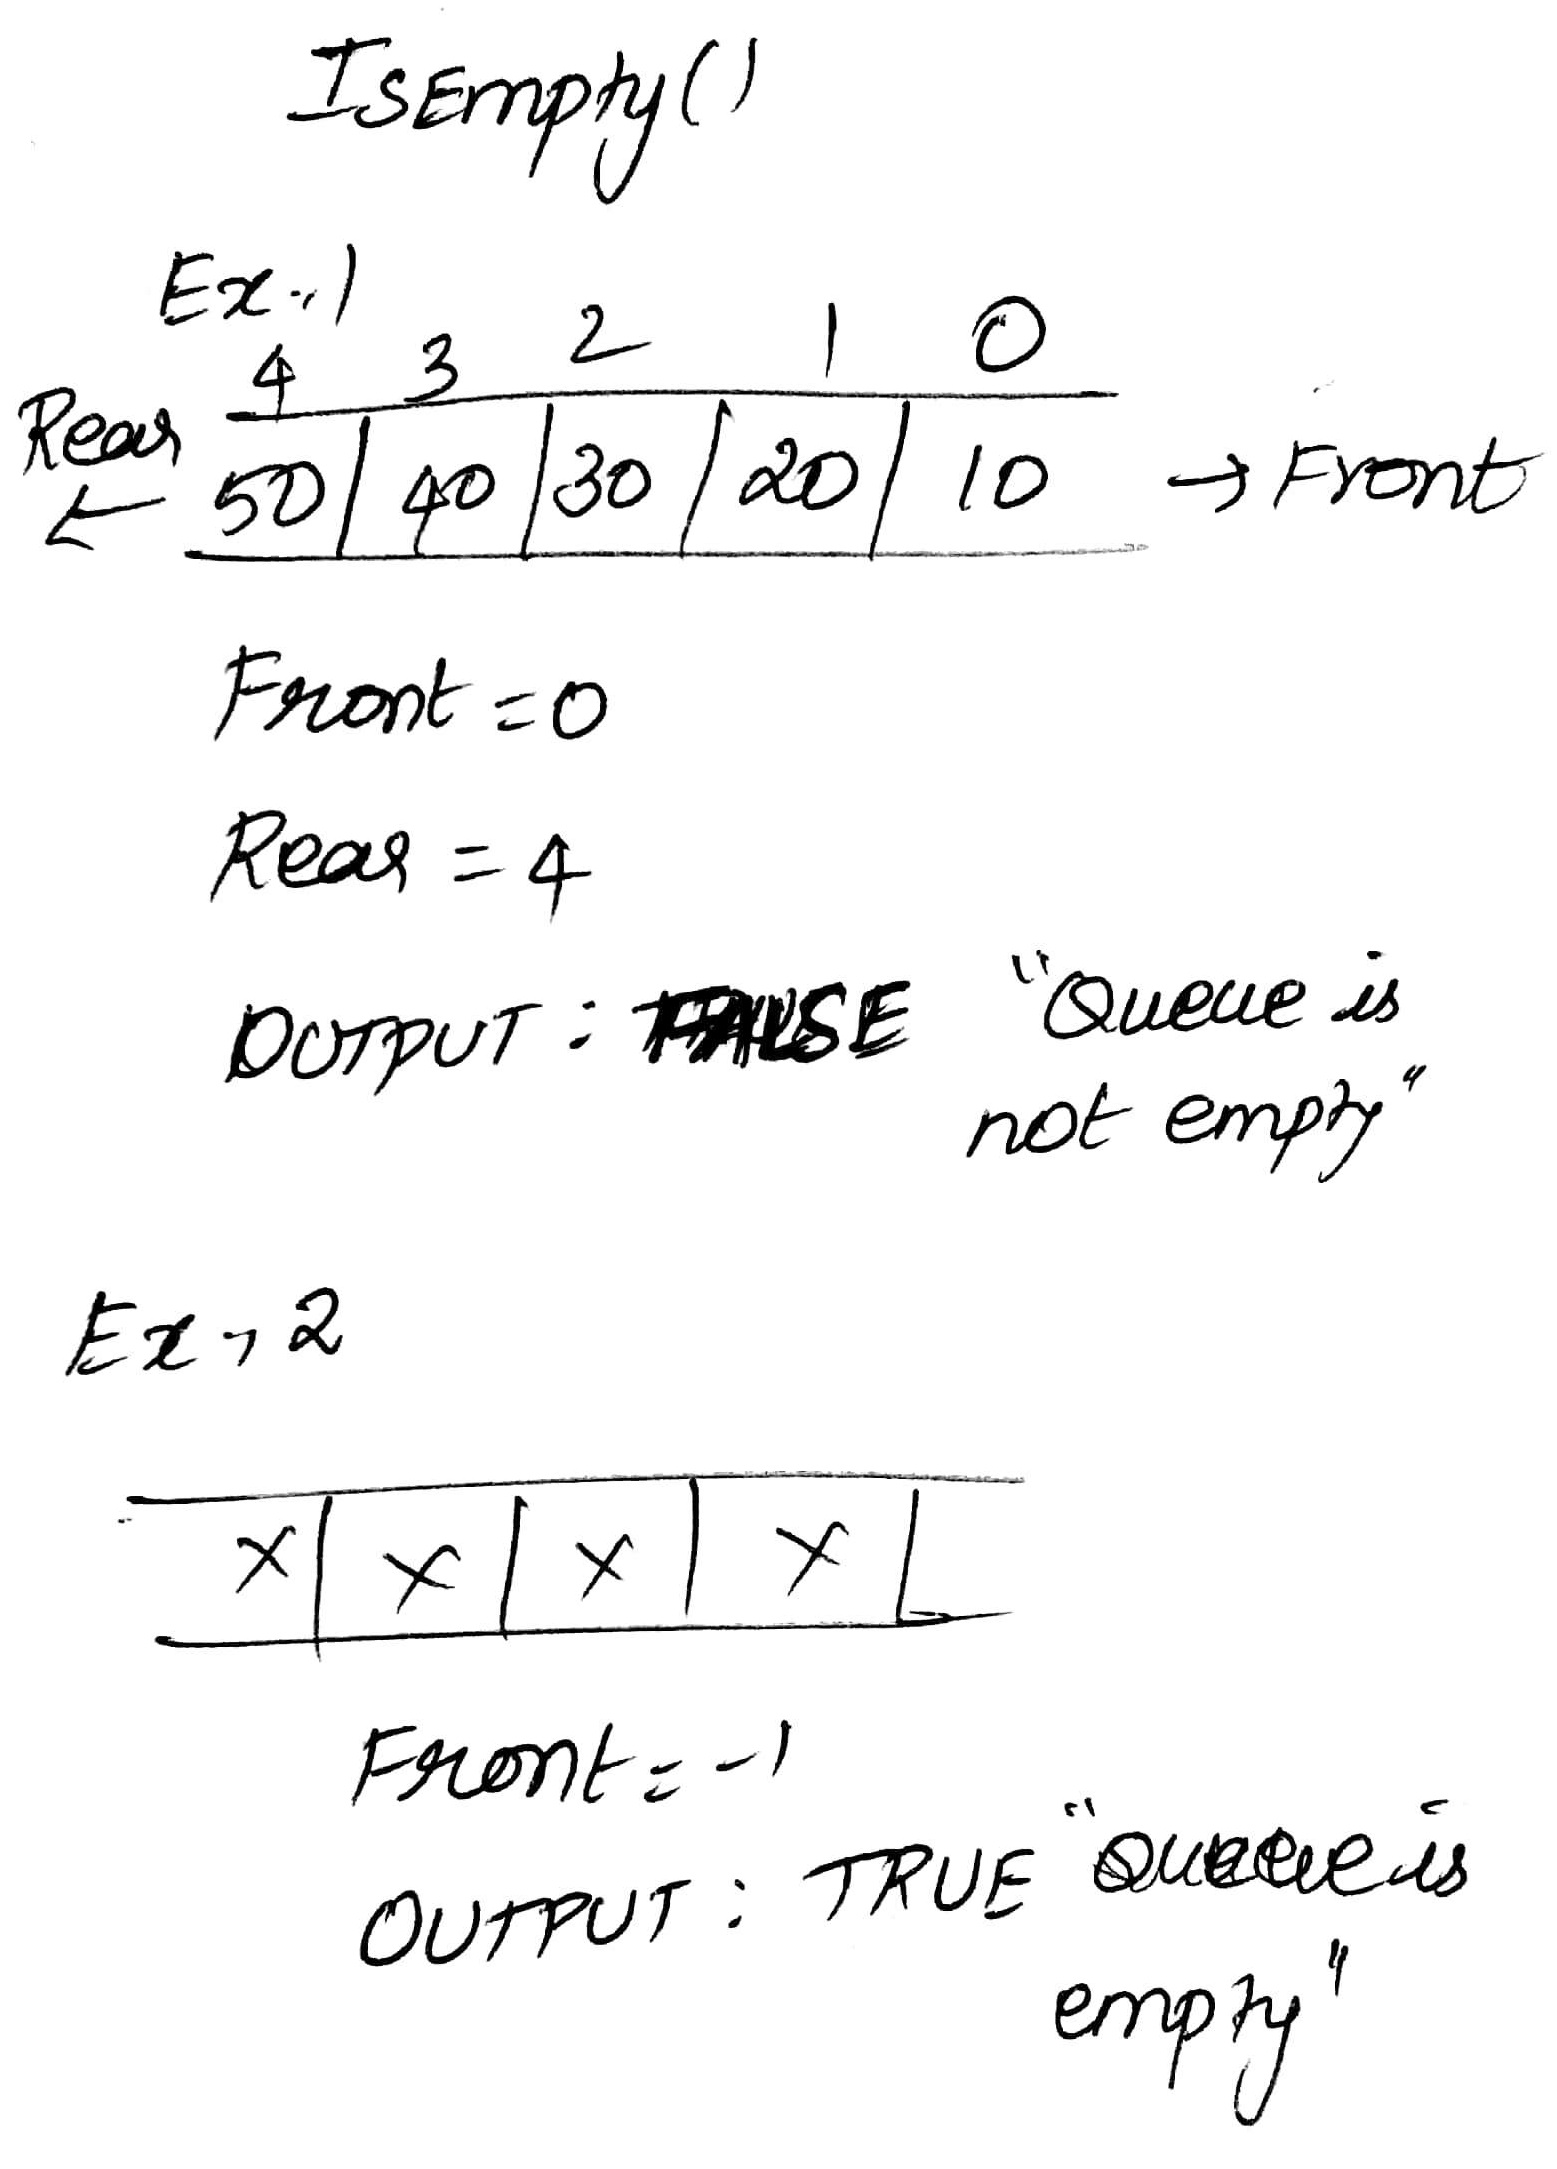 IsEmpty()
Ex-1
4 3 2 1 0
Rear ← 50 | 40 | 30 | 20 | 10 → Front
Front = 0
Rear = 4
OUTPUT : FALSE "Queue is
not empty"
Ex-2
x | x | x | x |
Front = -1
OUTPUT : TRUE "Queue is
empty"